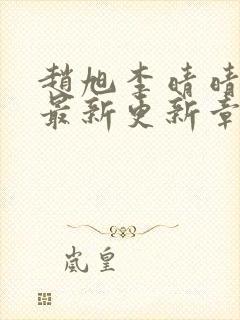 趙旭李晴晴
最新更新章
嵐皇